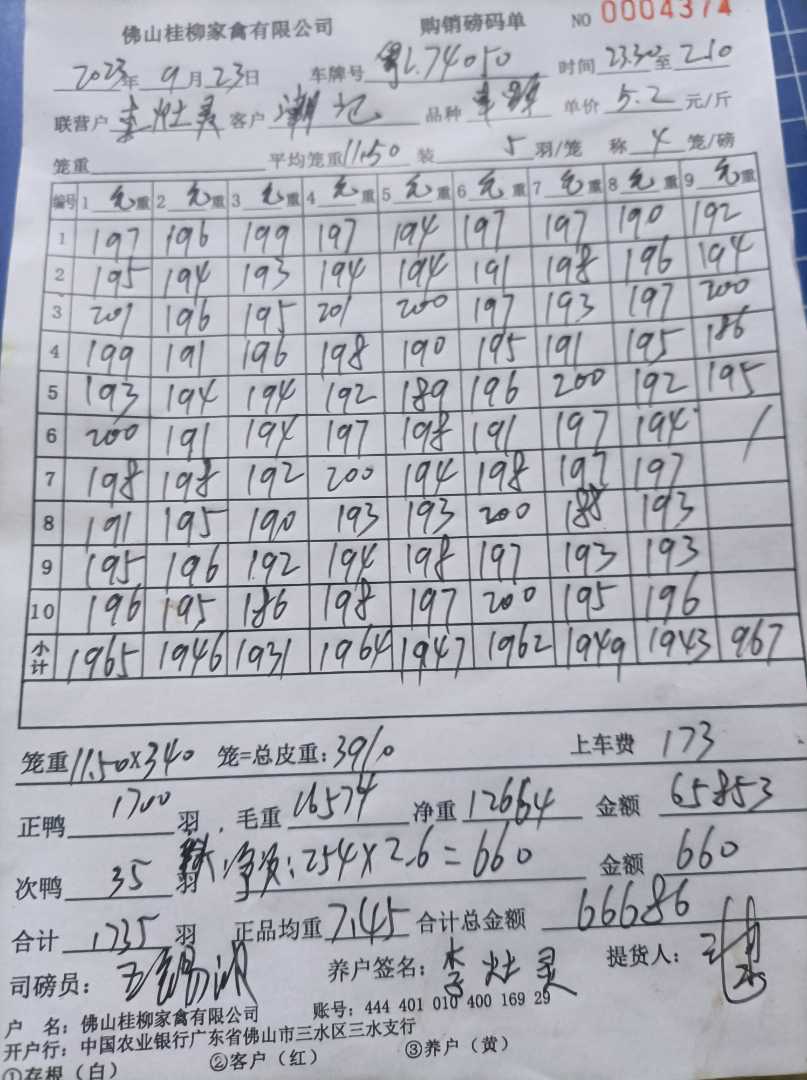 佛山桂柳家禽有限公司 购销磅码单 NO 0004374
2023年 9月 23日 车牌号 粤L.74050 时间 23.30 至 2.10
联营户 李灶灵 客户 潮记 品种 单价 5.2 元/斤
笼重 平均笼重 11.50 装 5 羽/笼 称 4 笼/磅
编号 1 毛重 2 毛重 3 毛重 4 毛重 5 毛重 6 毛重 7 毛重 8 毛重 9 毛重
1 197 196 199 197 194 197 197 190 192
2 195 194 193 194 194 191 198 196 194
3 201 196 195 201 200 197 193 197 200
4 199 191 196 198 190 195 191 195 186
5 193 194 194 192 189 196 200 192 195
6 200 191 194 197 198 191 197 194 /
7 198 198 192 200 194 198 197 197
8 191 195 190 193 193 200 188 193
9 195 196 192 194 198 197 193 193
10 196 195 186 198 197 200 195 196
小计 1965 1946 1931 1964 1947 1962 1949 1943 967
笼重 11.50 X 340 笼=总皮重: 3910 上车费 173
正鸭 1700 羽, 毛重 16574 净重 12664 金额 65853
次鸭 35 羽 净重: 254 X 2.6 = 660 金额 660
合计 1735 羽 正品均重 7.45 合计总金额 66686
司磅员: 养户签名: 李灶灵 提货人:
户 名: 佛山桂柳家禽有限公司 账号: 444 401 010 400 169 29
开户行: 中国农业银行广东省佛山市三水区三水支行
①存根(白) ②客户(红) ③养户(黄)